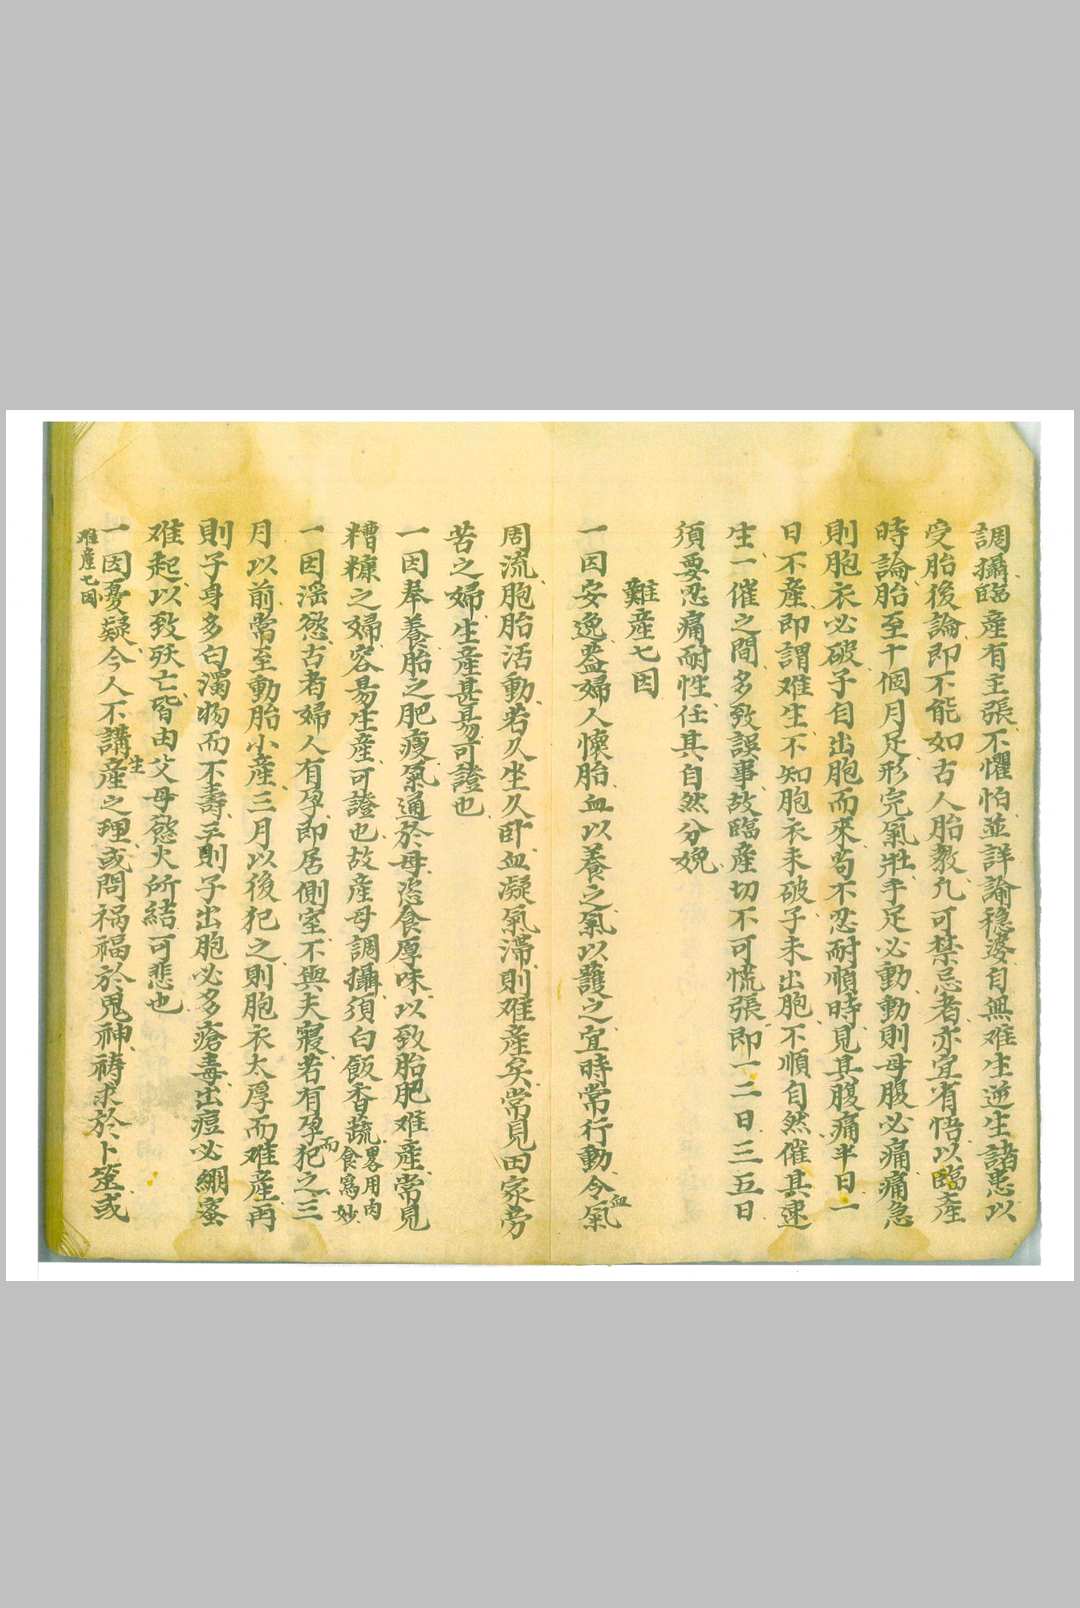 調攝臨產有主張不懼怕並詳論穩婆自無难生逆生諸患以
受胎後論即不能如古人胎教凡可禁忌者亦宜省悟以臨產
時論胎至十個月足形完氣壯手足必動動則母腹必痛痛急
則胞衣必破子自出胞而來苟不忍耐順時見其腹痛半日一
日不產即謂难生不知胞衣未破子未出胞不順自然催其速
生一催之間多致誤事故臨產切不可慌張即一二日三五日
須要忍痛耐性任其自然分娩
難產七因
一因安逸蓋婦人懷胎血以養之氣以護之宜時常行動令氣血
周流胞胎活動若久坐久卧血凝氣滯則难產矣常見田家劳
苦之婦生產甚易可證也
一因奉養胎之肥瘦氣通於母恣食厚味以致胎肥难產常見
糟糠之婦容易生產可證也故產母調攝須白飯香蔬畧用肉食為妙
一因滛慾古者婦人有孕即居側室不與夫寢若有孕而犯之三
月以前常至動胎小產三月以後犯之則胞衣太厚而难產再
則子身多白濁物而不壽三則子出胞必多瘡毒出痘必綳蜜
难起以致殀亡皆由父母慾火所結可悲也
一因憂疑今人不講生產之理或問禍福於鬼神祷求於卜筮或
难產七因